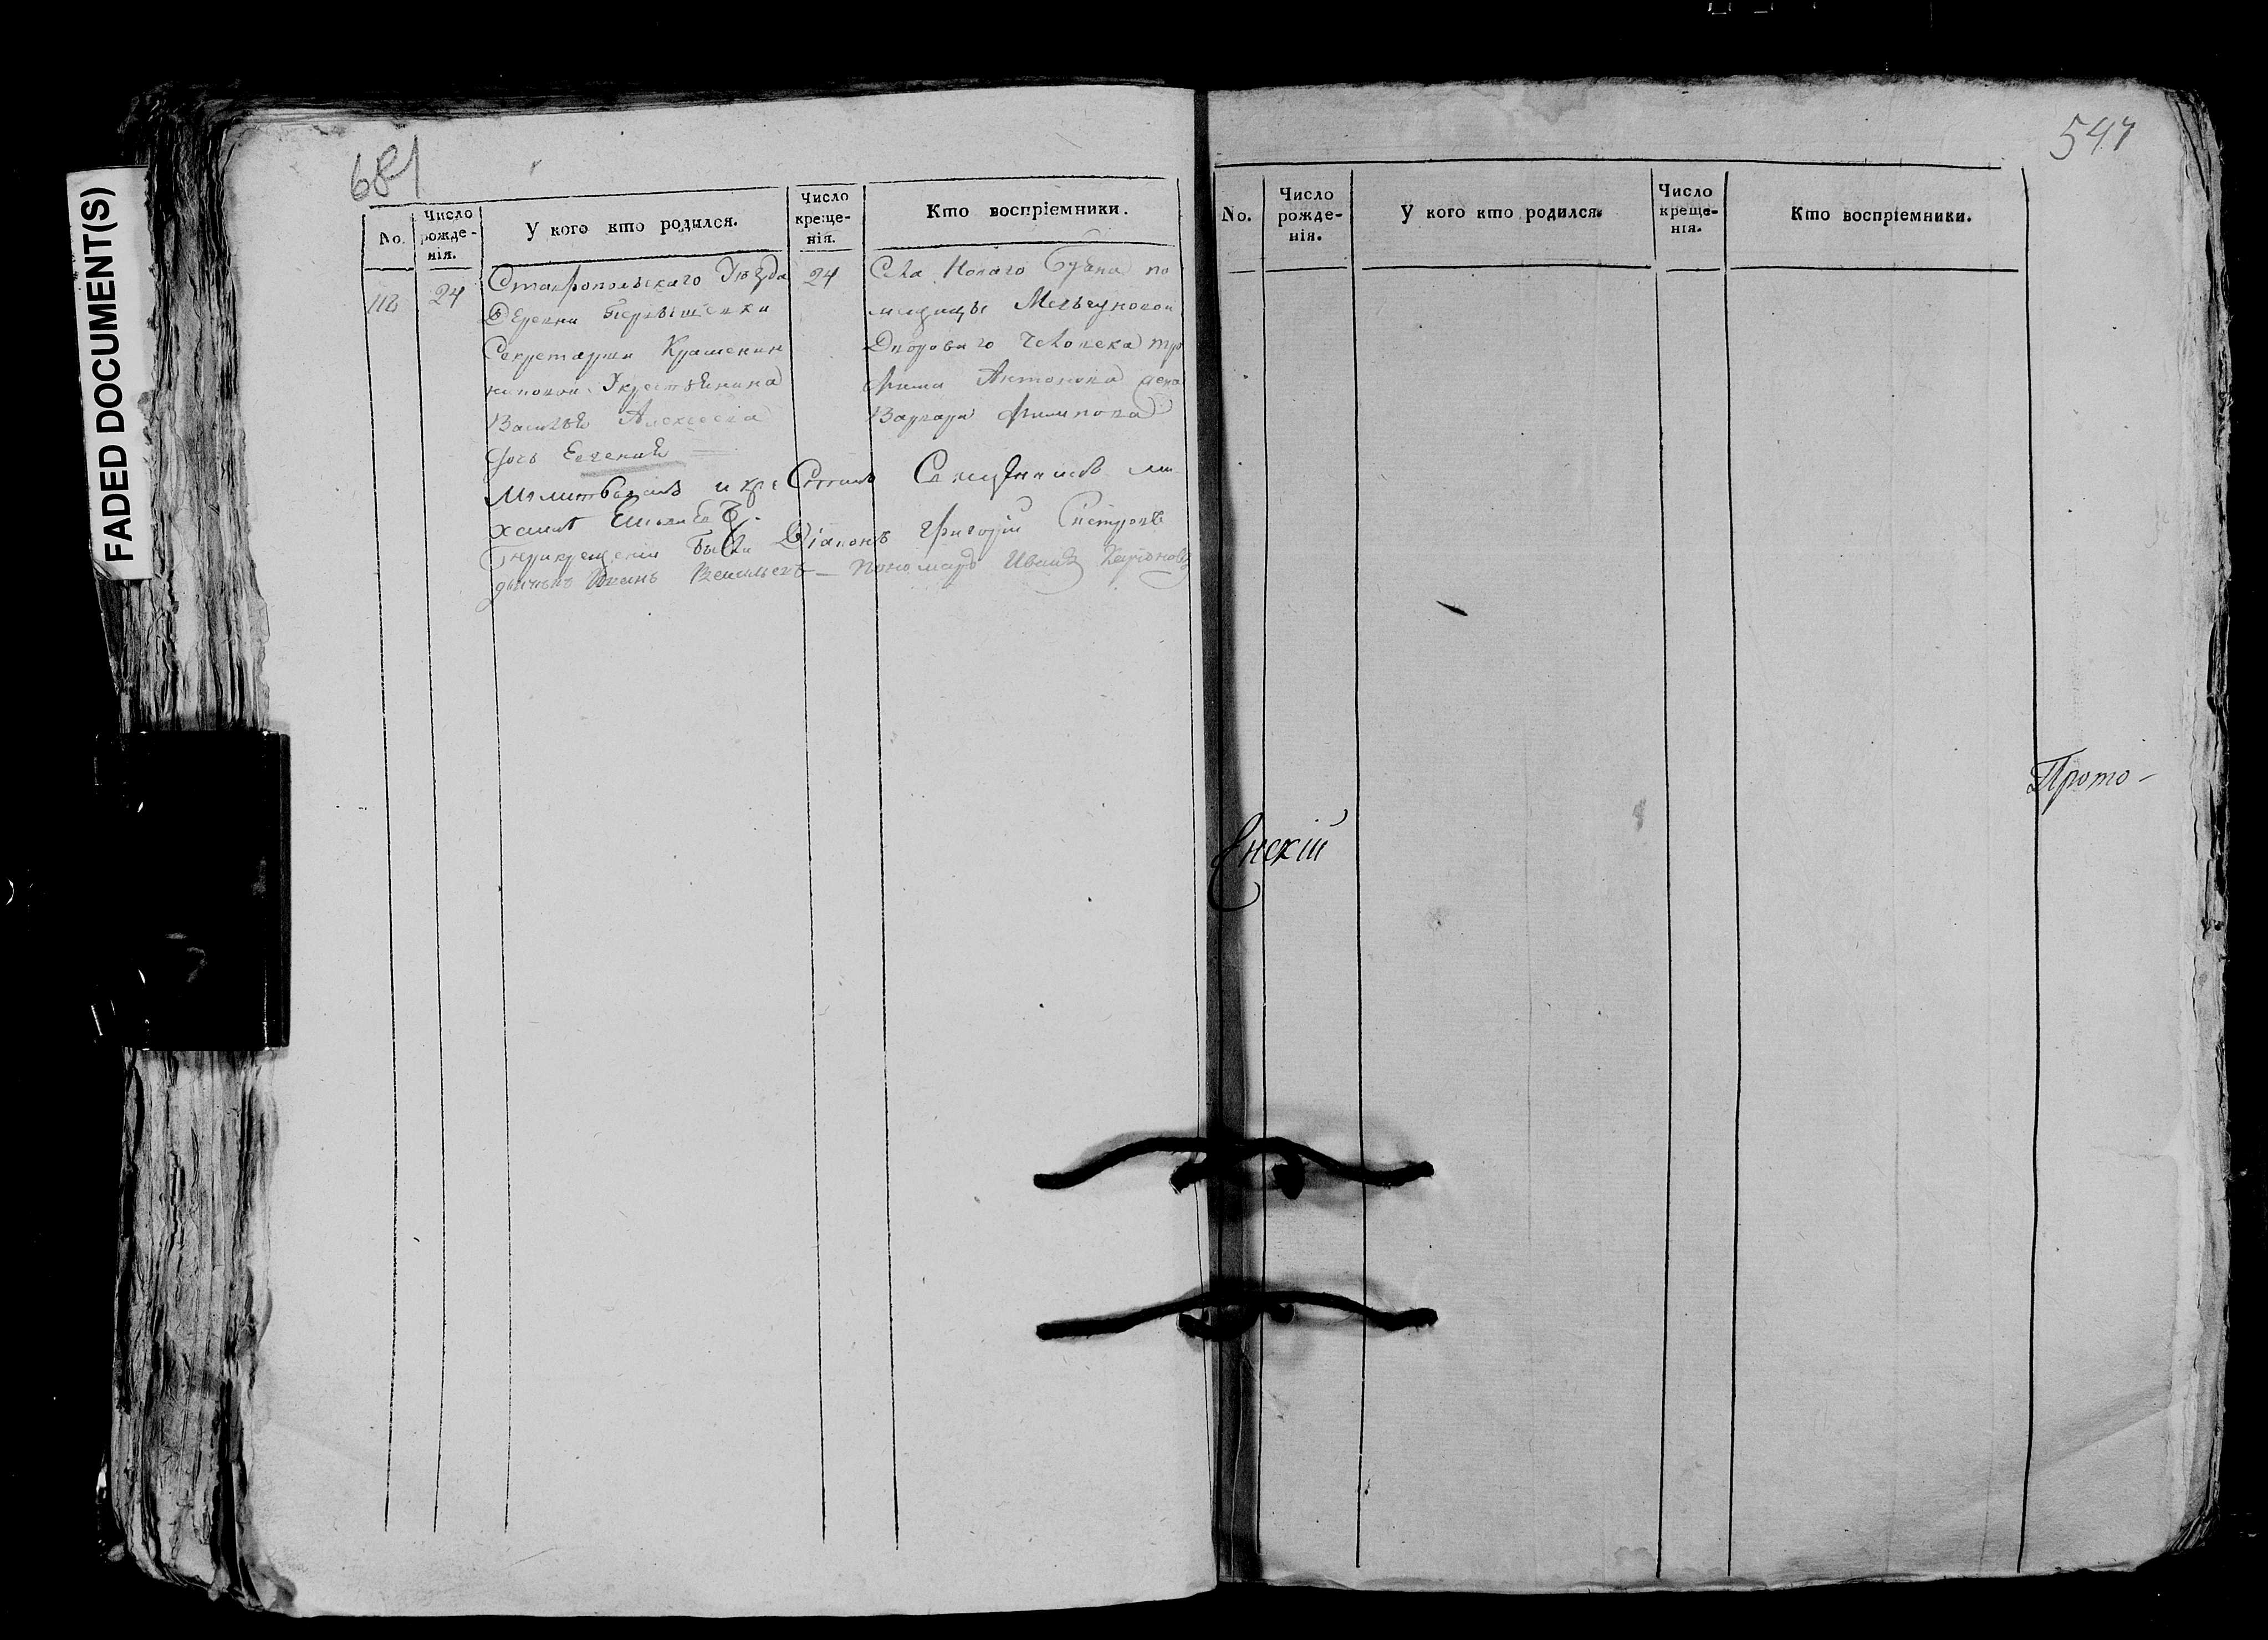 FADED DOCUMENT(S)
681
No.
Число рожде-нія.
У кого кто родился.
Число креще-нія.
Кто воспріемники.
112 24
Ставропольскаго Уѣзда
Деревни
Секретарши Крашенин
никовой Укрестьянина
Василья Алексеева
дочь Евгения
24
Села Новаго Буяна по
мещицы Мельгуновой
Двороваго Человека тро
фима Антонова жена
Варвара Филипова
Молитвовалъ и крестилъ Священникъ ми
хаилъ
Прикрещении были Діаконъ Григорій Петровъ
дьячокъ Иванъ Васильевъ — пономарь Иванъ
547
No.
Число рожде-нія.
У кого кто родился.
Число креще-нія.
Кто воспріемники.
Прото-
енскій